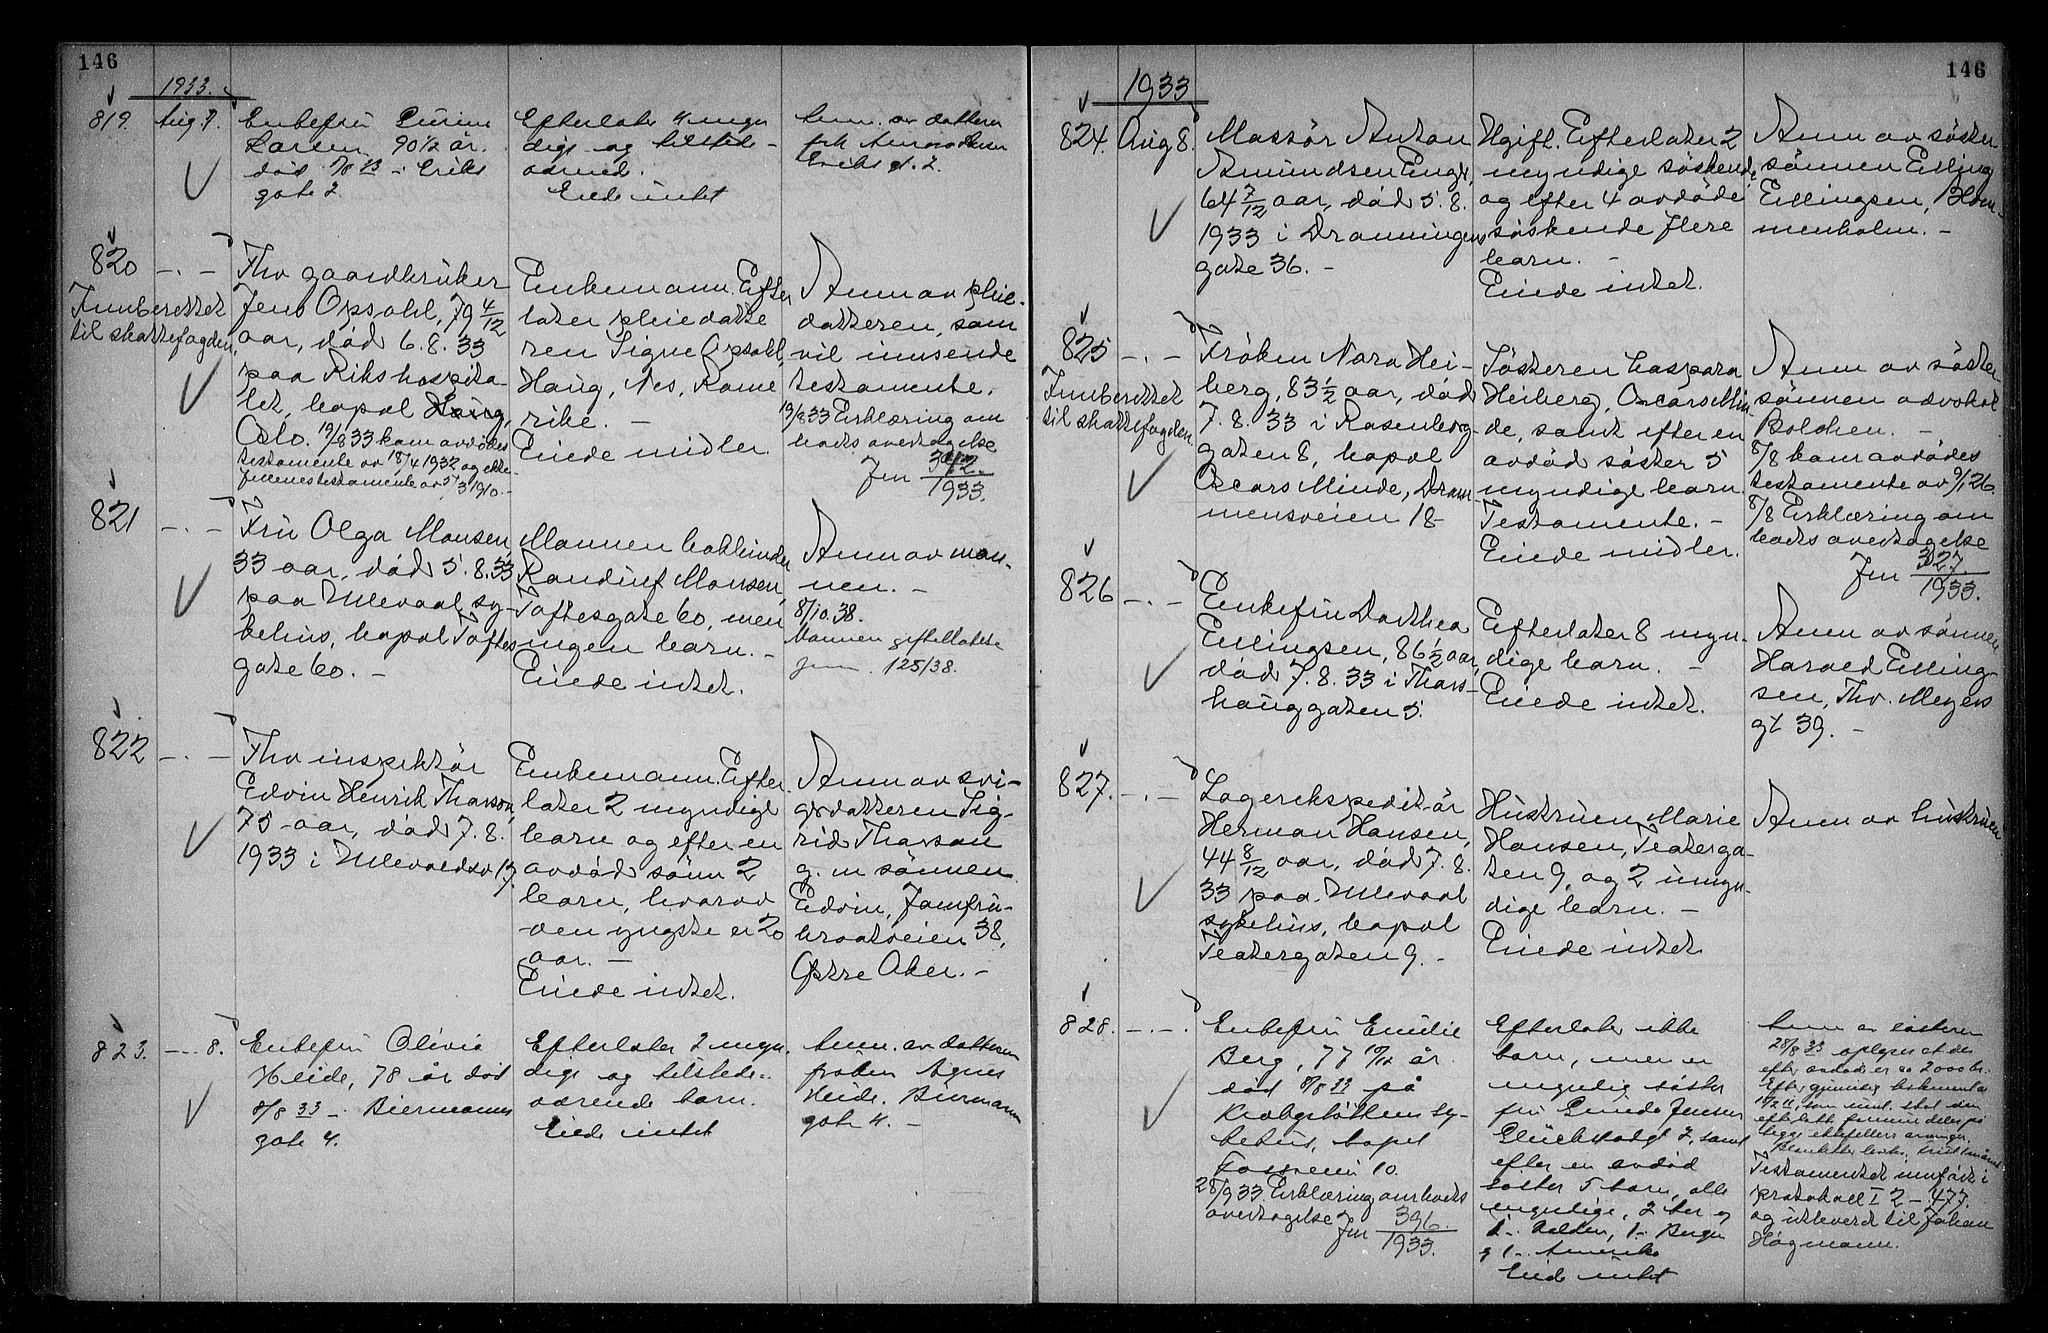 146
1933.
819. Aug 7.
Enkefru
Larsen, 90 1/2 år.
død 7/8 33 i Eriks
gate 2.
Efterlater 4 myn
dige og tilstede-
Eiede intet
Anm. av datteren
frk
Eriks gt. 2.
820 -.-
Innberettet
til skattefogden.
Fhv gaardbruker
Jens Opsahl, 79 4/12
aar, død 6.8.33
paa Rikshospita-
let, bopæl Haug,
Oslo. 19/8 33 kom avdødes
testamente av 18/4 1932 og ekte-
fellenes testamente av 5/3 1910.-
Enkemann. Efter
later pleiedatte
ren Signe Opsahl,
Haug, Nes, Rome
rike. -
Eiede midler.
Anm av pleie-
datteren, som
vil innsende
testamente.
19/8 33 Erklæring om
boets overtagelse
Jnr 342./1933.
821 -.-
Fru Olga Monsen,
33 aar, død 5.8.33
paa Ullevaal sy-
kehus, bopæl Toftes
gate 60. -
Mannen
Randulf Monsen,
Toftesgate 60, men
ingen barn. -
Eiede intet.
Anm av man-
nen. -
8/10.38.
Mannen
jnr. 125/38.
822 -.-
Fhv inspektør
Edvin Henrik Thoreson,
75 aar, død 7.8.
1933 i Ullevoldsv 17.
Enkemann. Efter
later 2 myndige
barn og efter en
avdød sønn 2
barn, hvorav
den yngste er 20
aar. -
Eiede intet.
Anm av svi-
gerdatteren Sig-
rid Thoreson
g. m sønnen
Edvin, Jomfru-
braatveien 38,
Østre Aker. -
823. -.- 8.
Enkefru Olivia
Heide, 78 år død
8/8 33 - Biermanns
gate 4.
Efterlater 2 myn.
dige og tilstede-
værende barn.
Eiede intet
Anm. av datteren
frøken Agnes
Heide. Biermanns
gate 4. -
146
1933
824. Aug 8.
Massør Anton
Amundsen Enger,
64 7/12 aar, død 5.8.
1933 i Dronningens
gate 36. -
Ugift. Efterlater 2
myndige søskende
og efter 4 avdøde
søskende flere
barn. -
Eiede intet.
Anm av søster
sønnen Erling
Ellingsen, Blom-
menholm. -
825 -.-
Innberettet
til skattefogden.
Frøken Nora Hei-
berg, 83 1/2 aar, død
7.8.33 i Rosenborg-
gaten 8, bopæl
Oscars Minde, Dram
mensveien 18-
Søsteren Caspara
Heiberg, Oscars Min-
de, samt efter en
avdød søster 5
myndige barn.
Testamente. -
Eiede midler.
Anm av søster
sønnen advokat
Bolchen. -
8/8 kom avdødes
testamente av 9/1 26.
8/8 Erklæring om
boets overtagelse
Jnr 327/1933.
826 -.-
Enkefru Dorthea
Ellingsen, 86 1/2 aar,
død 7.8.33 i Thors-
hauggaten 5.
Efterlater 8 myn-
dige barn. -
Eiede intet.
Anm av sønnen
Harald Elling-
sen, Thv. Meyers
gt 39. -
827. -.-
Lagerekspeditør
Herman Hansen,
44 8/12 aar, død 7.8.
33 paa Ullevaal
sykehus, bopæl
Teatergaten 9. -
Hustruen Marie
Hansen, Teaterga-
ten 9, og 2 umyn-
dige barn. -
Eiede intet
Anm av hustruen
828. -.-.
Enkefru Emilie
Berg, 77 10/12 år.
død 8/8 33 på
Krohgstøttens sy-
kehus, bopel
Fossveien 10.
28/9 33. Erklæring om boets
overtagelse Jnr 396./1933.
Efterlater ikke
barn, men en
myndig søster
fru Jensen
samt
efter en avdød
søster 5 barn, alle
myndige, 2 her og
1 - Halden, 1 - Bergen
og 1 - Amerika
Eiede intet
Anm av søsteren
28/8 33 oplyses at det
efter avdøde er ca 2000 kr.
Efter gjensidig testamente
Testamentet innført i
protokoll I 2 - 477.
og utlevert til Johan
Høgmann.